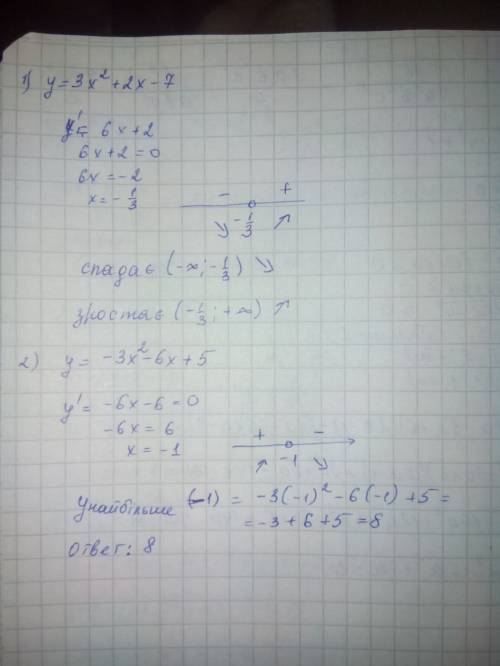 1) y = 3x² + 2x - 7
y' = 6x + 2
6x + 2 = 0
6x = -2
x = - 1/3
- +
↘ - 1/3 ↗
спадає (-∞; - 1/3) ↘
зростає (- 1/3; +∞) ↗
2) y = -3x² - 6x + 5
y' = -6x - 6 = 0
-6x = 6
x = -1
+ -
↗ -1 ↘
y найбільше (-1) = -3(-1)² - 6(-1) + 5 =
= -3 + 6 + 5 = 8
Ответ: 8